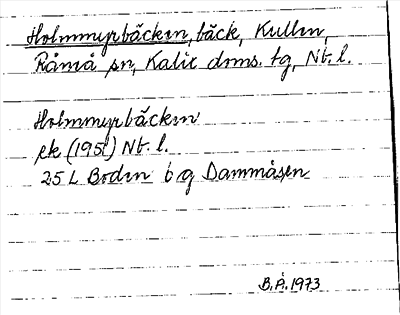 Holmmyrbäcken, bäck, Kullen,
Råneå sn, Kalix doms. tg, Nb. l.
Holmmyrbäcken
ek (1951) Nb. l.
25 L Boden b g Dammåsen
B.Å. 1973